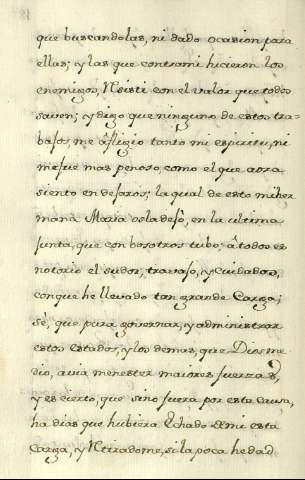 que buscandolas, ni dado ocasion para
ellas; y las que contra mi hicieron los
enemigos, Resisti con el valor que todos
saven; y digo que ninguno de estos tra=
bajos, me afligio tanto mi espiritu, ni
me fue mas penoso, como el que aora
siento en dejaros; la qual de esto mi her
mana Maria os la dejò, en la ultima
Junta, que con bosotros tubo; â todos es
notorio el sudor, travajo, y Cuidados,
conque he llevado tan grande Carga;
sé, que para governar, y administrar
estos Estados, y los demas, que Dios me
dio, avia menester maiores fuerzas,
y es cierto, que sino fuera por esta causa,
ha dias que hubiera Echado de mi esta
Carga, y Retiradome, si la poca hedad